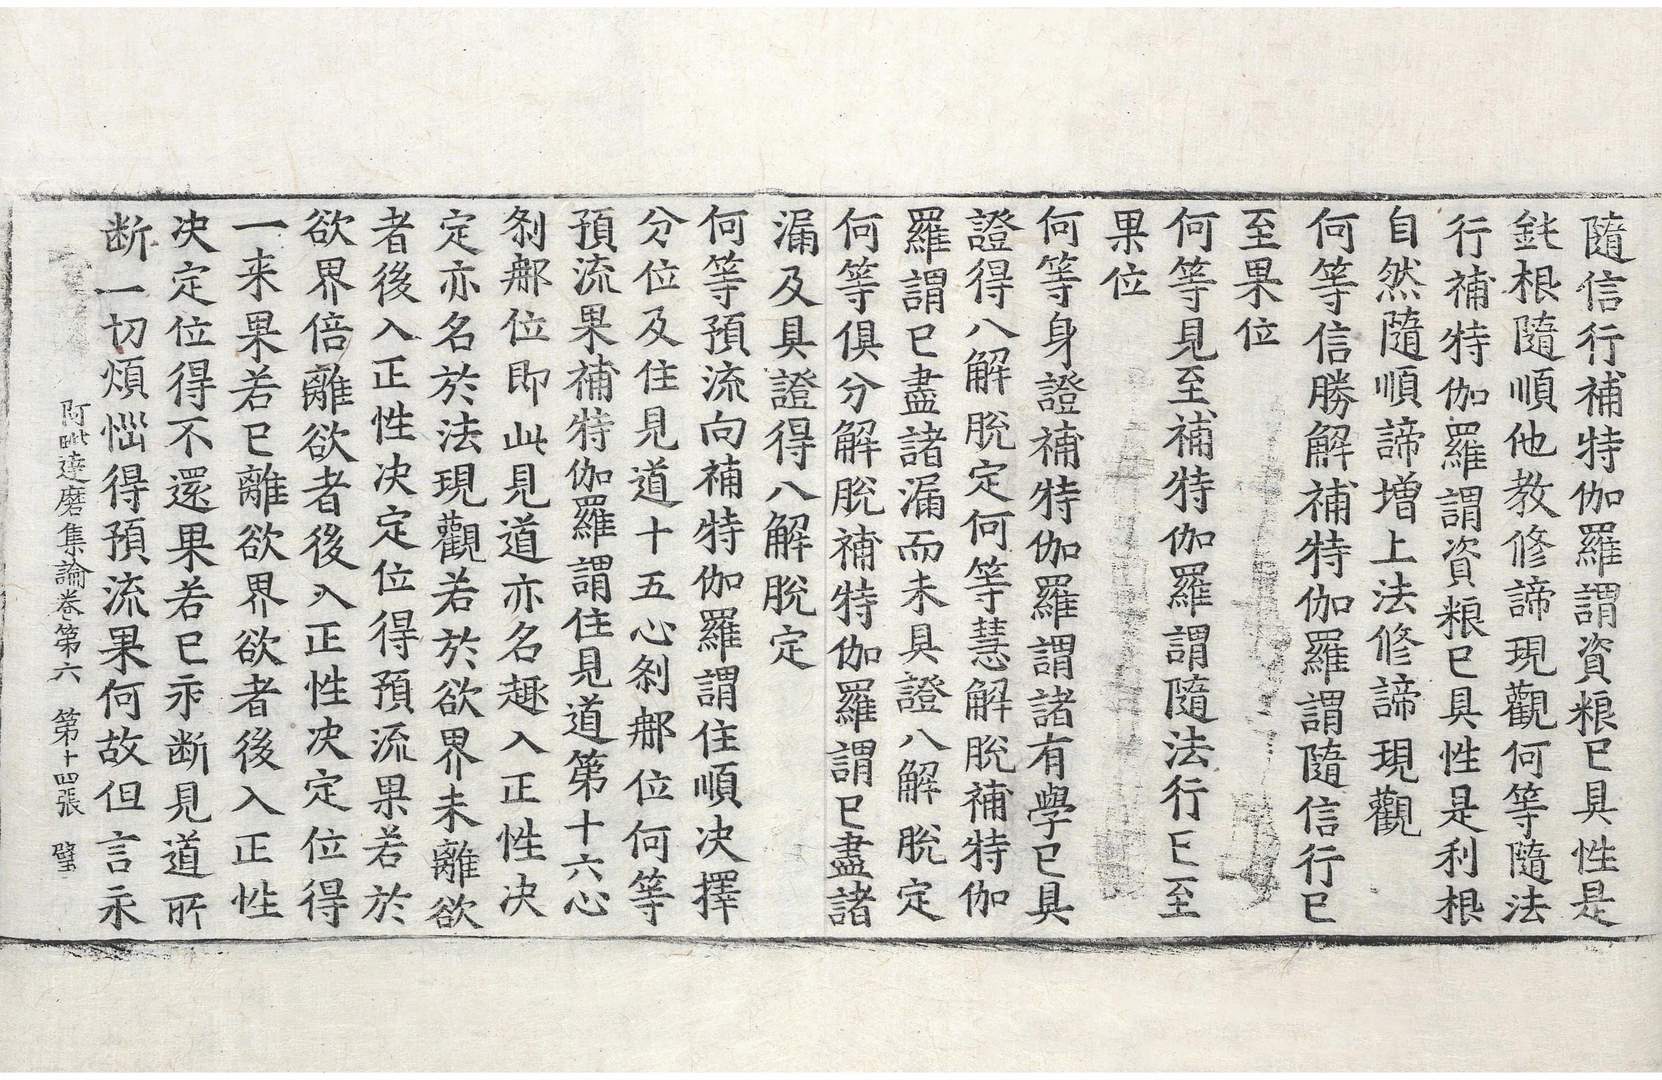 隨信行補特伽羅謂資粮已具性是
鈍根隨順他教修諦現觀何等隨法
行補特伽羅謂資粮已具性是利根
自然隨順諦增上法修諦現觀
何等信勝解補特伽羅謂隨信行已
至果位
何等見至補特伽羅謂隨法行已至
果位
何等身證補特伽羅謂諸有學已具
證得八解脫定何等慧解脫補特伽
羅謂已盡諸漏而未具證八解脫定
何等俱分解脫補特伽羅謂已盡諸
漏及具證得八解脫定
何等預流向補特伽羅謂住順决擇
分位及住見道十五心剎𨙻位何等
預流果補特伽羅謂住見道第十六心
剎𨙻位即此見道亦名趣入正性决
定亦名於法現觀若於欲界未離欲
者後入正性决定位得預流果若於
欲界倍離欲者後入正性决定位得
一来果若已離欲界欲者後入正性
决定位得不還果若已永断見道所
断一切煩惱得預流果何故但言永
阿毗達磨集論卷第六　第十四張　璧